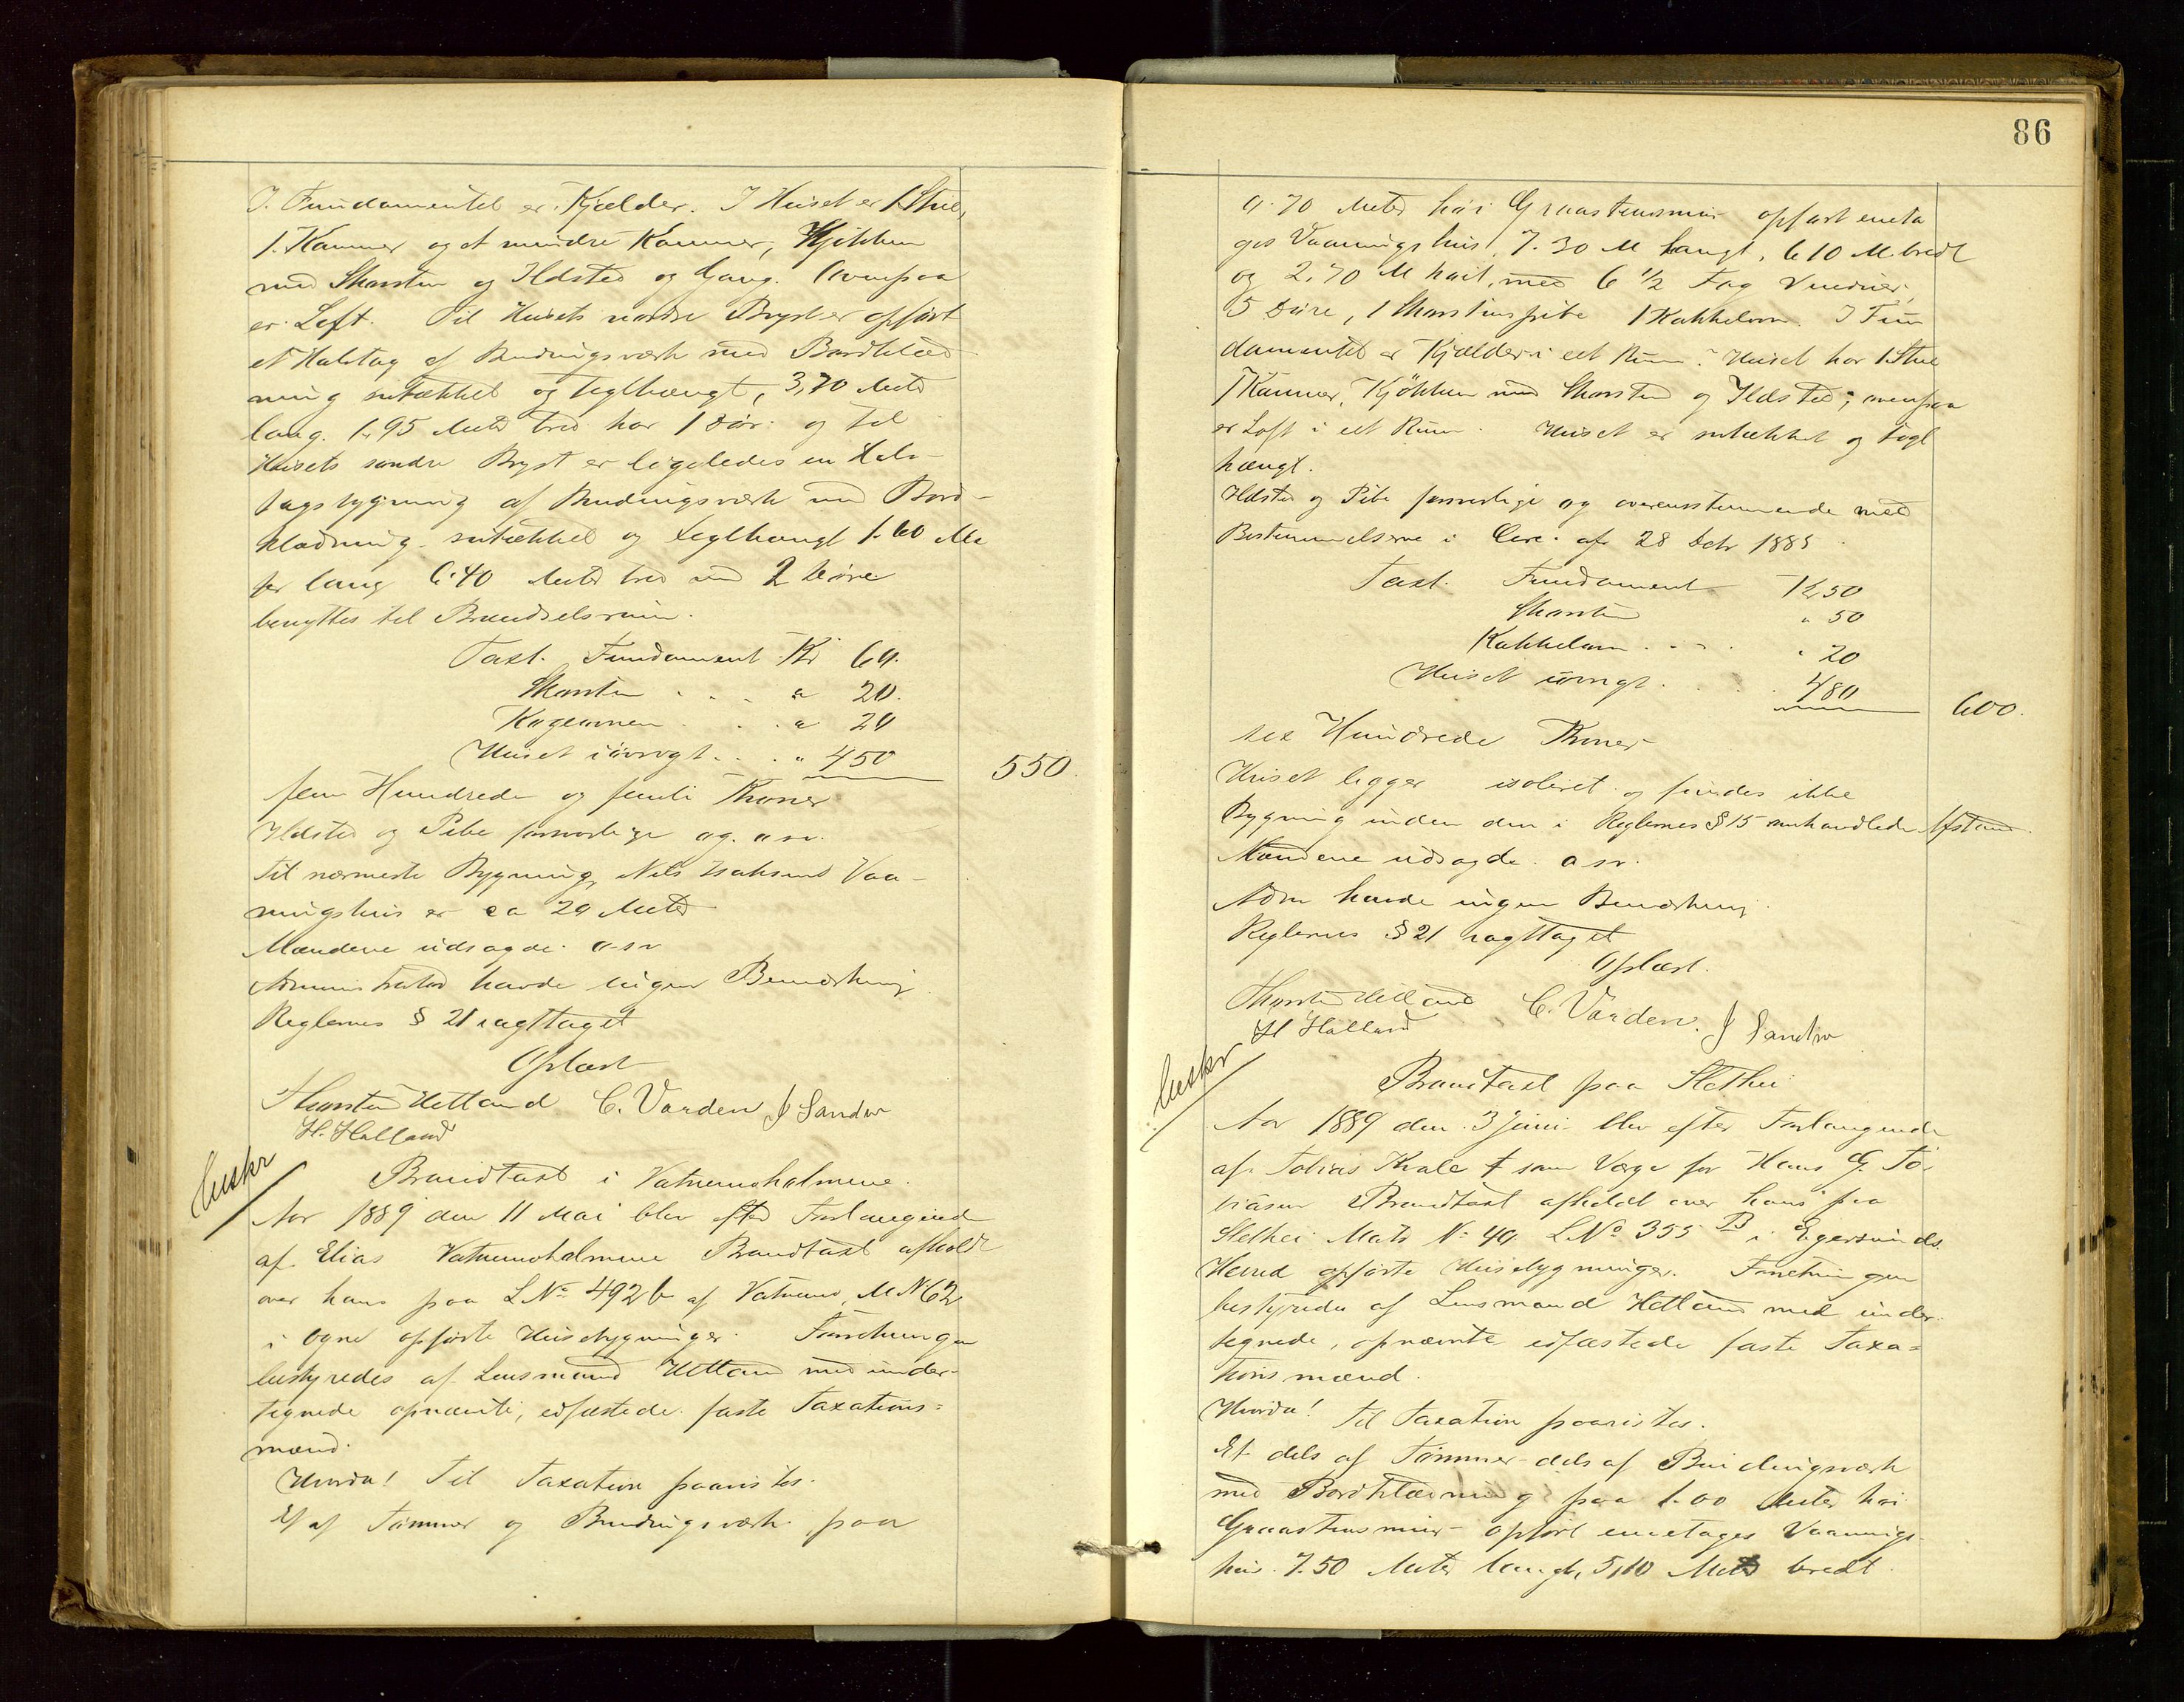 I Fundamentet er Kjælder. I Huset er 1 Stue,
1. Kammer og et mindre Kammer, Kjökken
med Skorsten og Ildsted og Gang. Ovenpaa
er Loft. Til Husets nordre Bryst er opfört
et Halvtag af Bindingsværk med Bordklæd-
ning netækket og teglhængt, 3,70 Meter
lang. 1.95 Meter bred har 1 Dör og til
Husets söndre Bryst er ligeledes en Halv-
tagsbygning af Bindingsværk med Bord-
klædning netækket og teglhængt 1.60 Me
ter lang 6.40 Meter bred med 2 Döre
benyttes til Brændselsrum.
Taxt. Fundament Kr 60.
Skorsten . . . " 20.
Kogeovnen . . . " 20
Huset iövrigt . . . " 450
550.
fem Hundrede og femti Kroner
Ildsted og Pibe forsvarlige og. o sv.
Til nærmeste Bygning, Nels Isaksens Vaa-
ningshus er ca 20 Meter
Mændene udsagde. o sv
Administrator havde ingen Bemærkning.
Reglernes § 21 iagttaget
Oplæst
Thorsten Hetland C. Vaaden J Sandve
H. Halland
Uskr
Brandtaxt i Vatnemoholmene.
Aar 1889 den 11 Mai blev efter Forlangende
af Elias Vatnemoholmene Brandtaxt afholdt
over hans paa L No 492 b af Vatnemo, M N 62
i Ogne opförte Husebygninger. Forretningen
bestyredes af Lensmand Hetland med under-
tegnede opnævnte, edfæstede faste Taxations=
mænd.
Hvorda! Til Taxation paavistes.
Et af Tömmer og Bindingsværk paa
86
0.70 Meter höi Graastensmur opfört eneta
ges Vaaningshus, 7.30 M langt, 6 10 M bredt
og 2.70 M höit, med 6 1/2 Fag Vinduer,
5 Döre, 1 Skorstenspibe 1 Kakkelovn. I Fun
damentet er Kjælder i eet Rum. Huset har 1 Stue
1 Kammer, Kjökken med Skorsten og Ildsted; ovenpaa
er Loft i eet Rum. Huset er netækket og tegl
hængt.
Ildsted og Pibe forsvarlige og overensstemmende med
Bestemmelserne i Circ. af 28 Octr 1885
Taxt. Fundament Kr 50
Skorsten " 50
Kakkelovn . . . " 20
Huset iövrigt . . . 480
600.
sex Hundrede Kroner
Huset ligger isoleret og findes ikke
Bygning inden den i Reglernes § 15 omhandlede Afstand.
Mændene udsagde o sv.
Adm havde ingen Bemærkning.
Reglernes § 21 iagttaget
Oplæst.
Thorsten Hetland C. Vaaden. J Sandve
H Halland
Uskr
Brandtaxt paa Slethei
Aar 1889 den 3 Juni blev efter Forlangende
af Tobias Kvale som Værge for Hans G. To
biasen Brandtaxt afholdt over hans paa
Slethei Matr No 40. L No 355 B i Egersunds
Herred opförte Husebygninger. Forretningen
bestyredes af Lensmand Hetland med under-
tegnede, opnævnte edfæstede faste Taxa=
tionsmænd.
Hvorda! Til Taxation paavistes.
Et dels af Tömmer dels af Bindingsværk
med Bordklædning paa 1.00 Meter höi
Graastensmur opfört eneetages Vaanings
hus 7.50 Meter langt, 5,10 Meter bredt